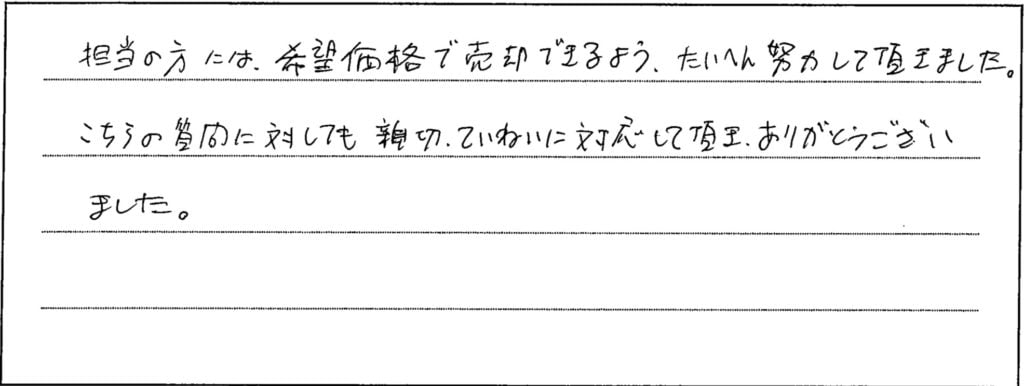 担当の方には、希望価格で売却できるよう、たいへん努力して頂きました。
こちらの質問に対しても親切、ていねいに対応して頂き、ありがとうござい
ました。